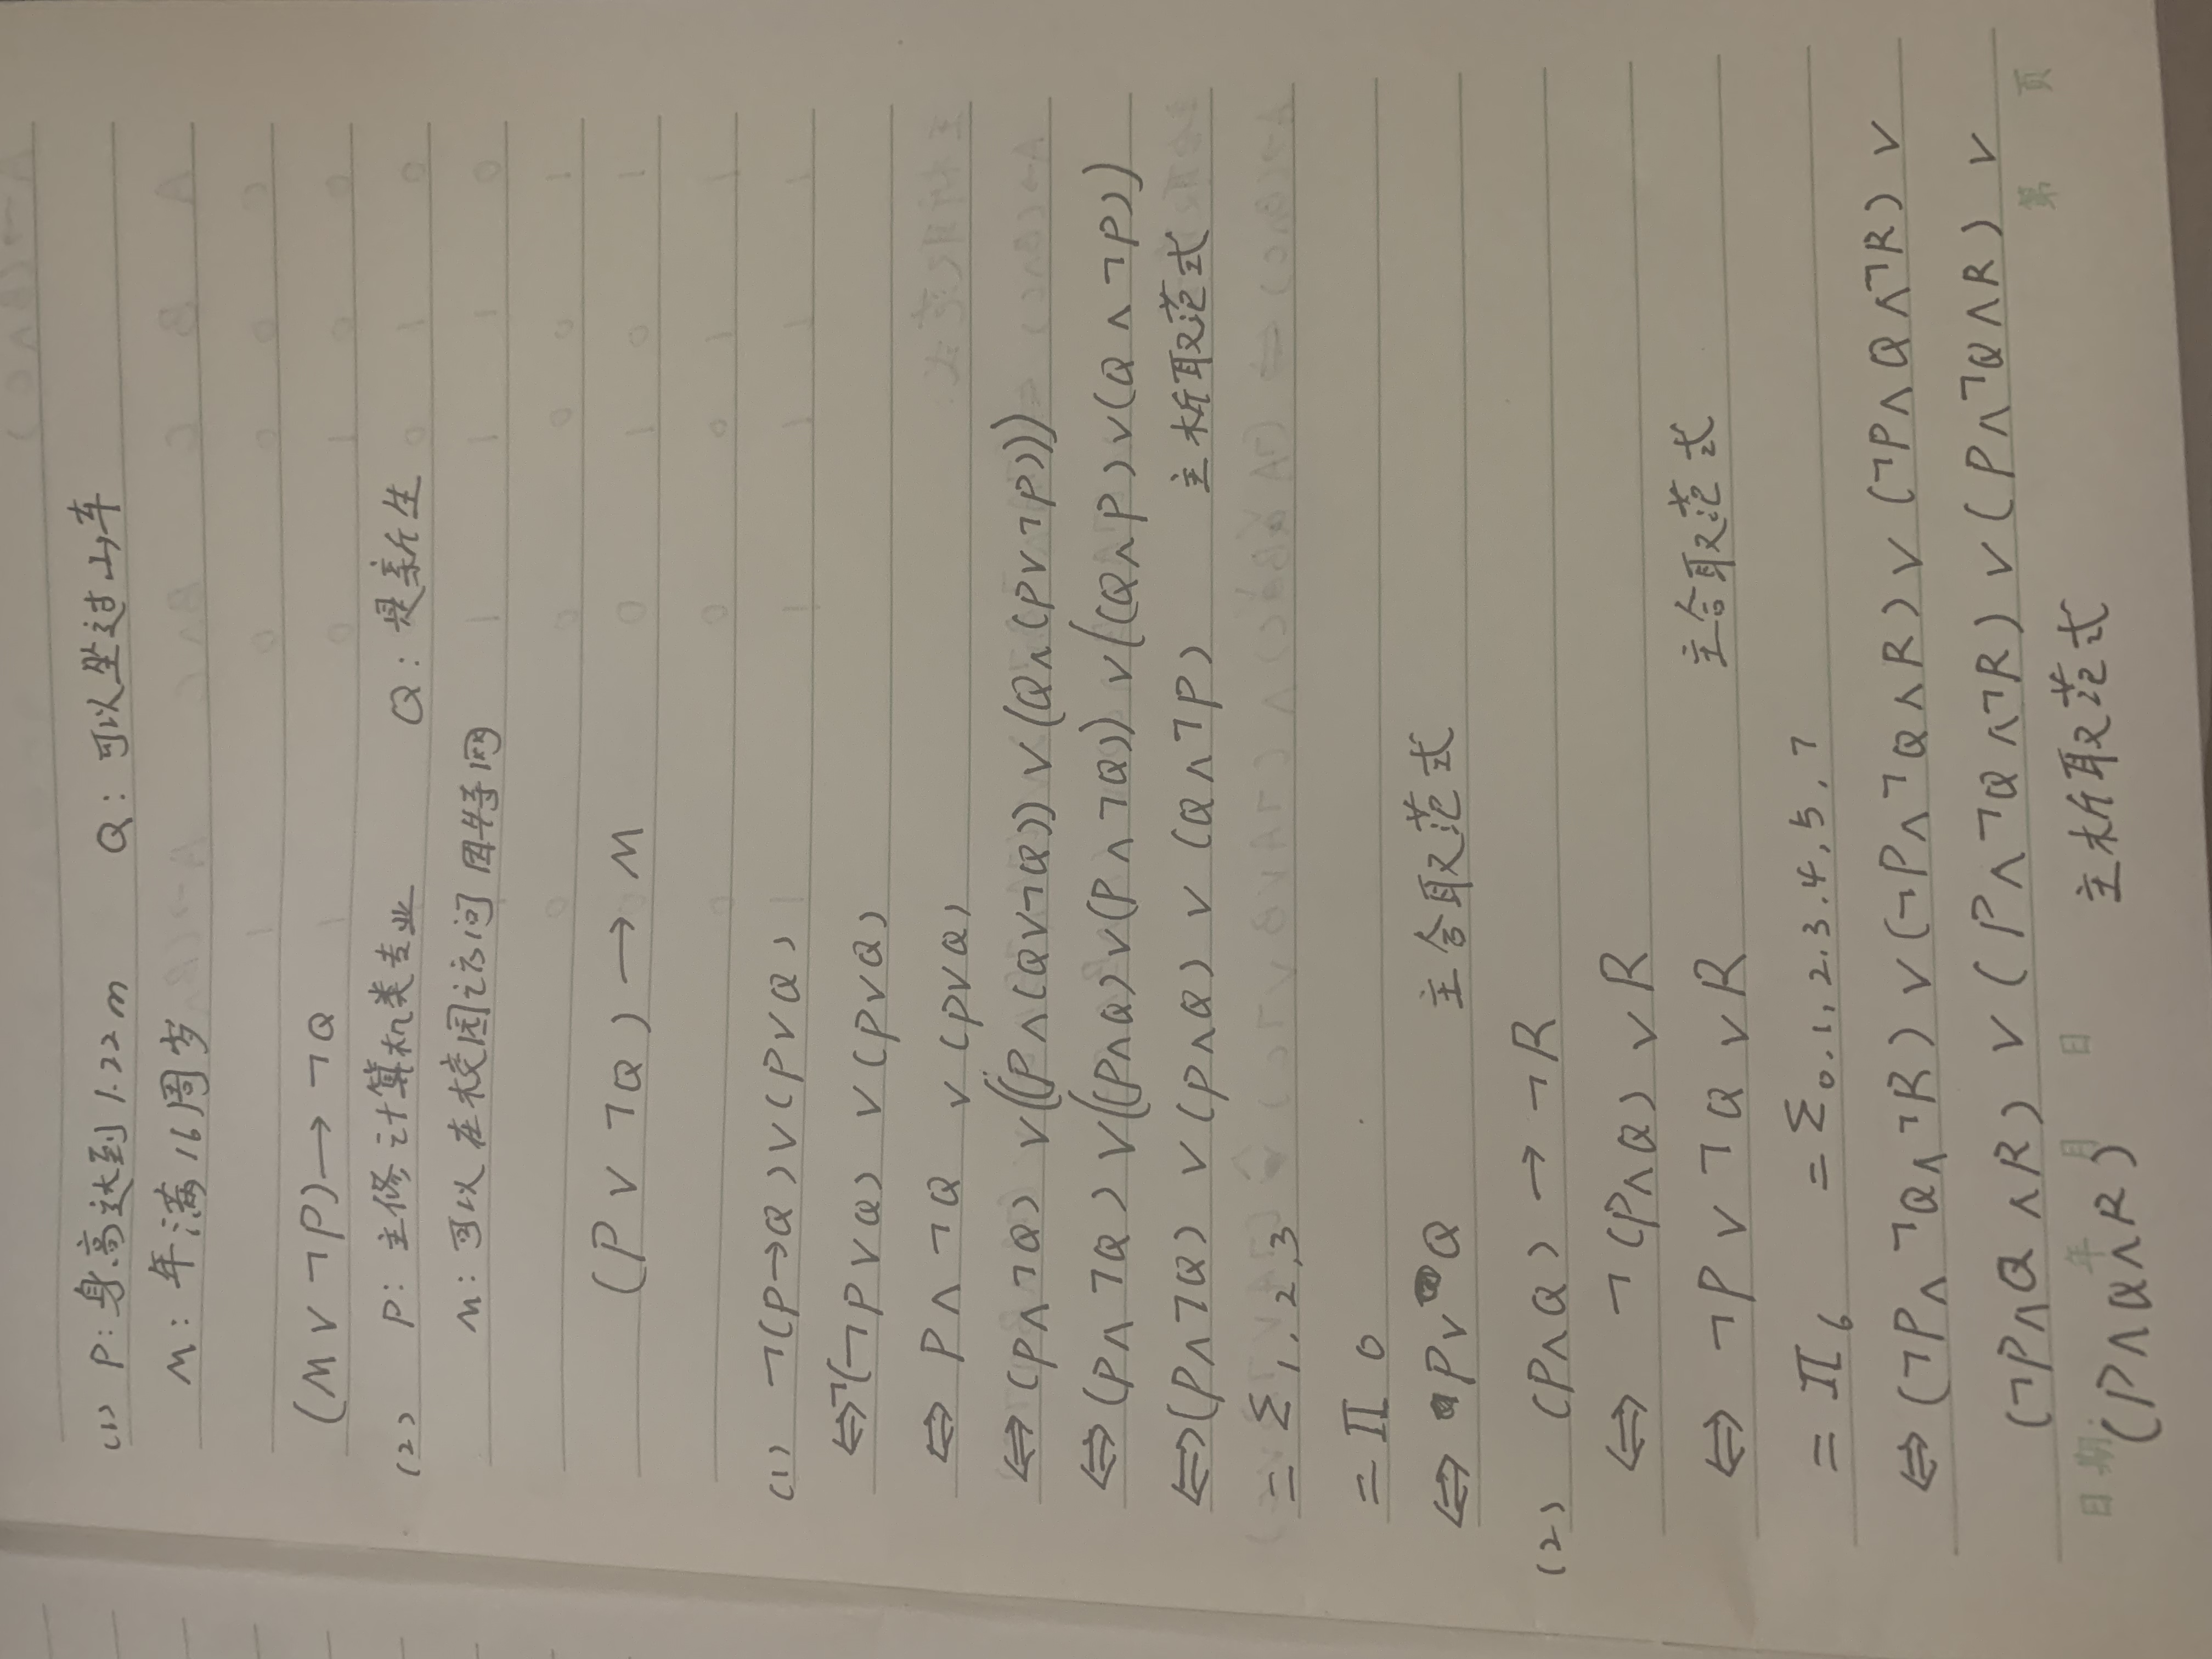 (1) P: 身高达到 1.22 m Q: 可以坐过山车
M: 年满 16 周岁
(M ∨ ¬P) → ¬Q
(2) P: 主修计算机类专业 Q: 是新生
M: 可以在校园访问因特网
(P ∨ ¬Q) → M
(1) ¬(P→Q) ∨ (P∨Q)
⇔ ¬(¬P∨Q) ∨ (P∨Q)
⇔ P∧¬Q ∨ (P∨Q)
⇔ (P∧¬Q) ∨ ((P∧(Q∨¬Q)) ∨ (Q∧(P∨¬P)))
⇔ (P∧¬Q) ∨ ((P∧Q)∨(P∧¬Q)) ∨ ((Q∧P)∨(Q∧¬P))
⇔ (P∧¬Q) ∨ (P∧Q) ∨ (Q∧¬P) 主析取范式
= Σ 1, 2, 3
= Π 0
⇔ P∨Q 主合取范式
(2) (P∧Q) → ¬R
⇔ ¬(P∧Q) ∨ R
⇔ ¬P ∨ ¬Q ∨ R 主合取范式
= Π 6 = Σ 0, 1, 2, 3, 4, 5, 7
⇔ (¬P∧¬Q∧¬R) ∨ (¬P∧¬Q∧R) ∨ (¬P∧Q∧¬R) ∨
(¬P∧Q∧R) ∨ (P∧¬Q∧¬R) ∨ (P∧¬Q∧R) ∨
第 页
日期: 年 月 日
(P∧Q∧R) 主析取范式